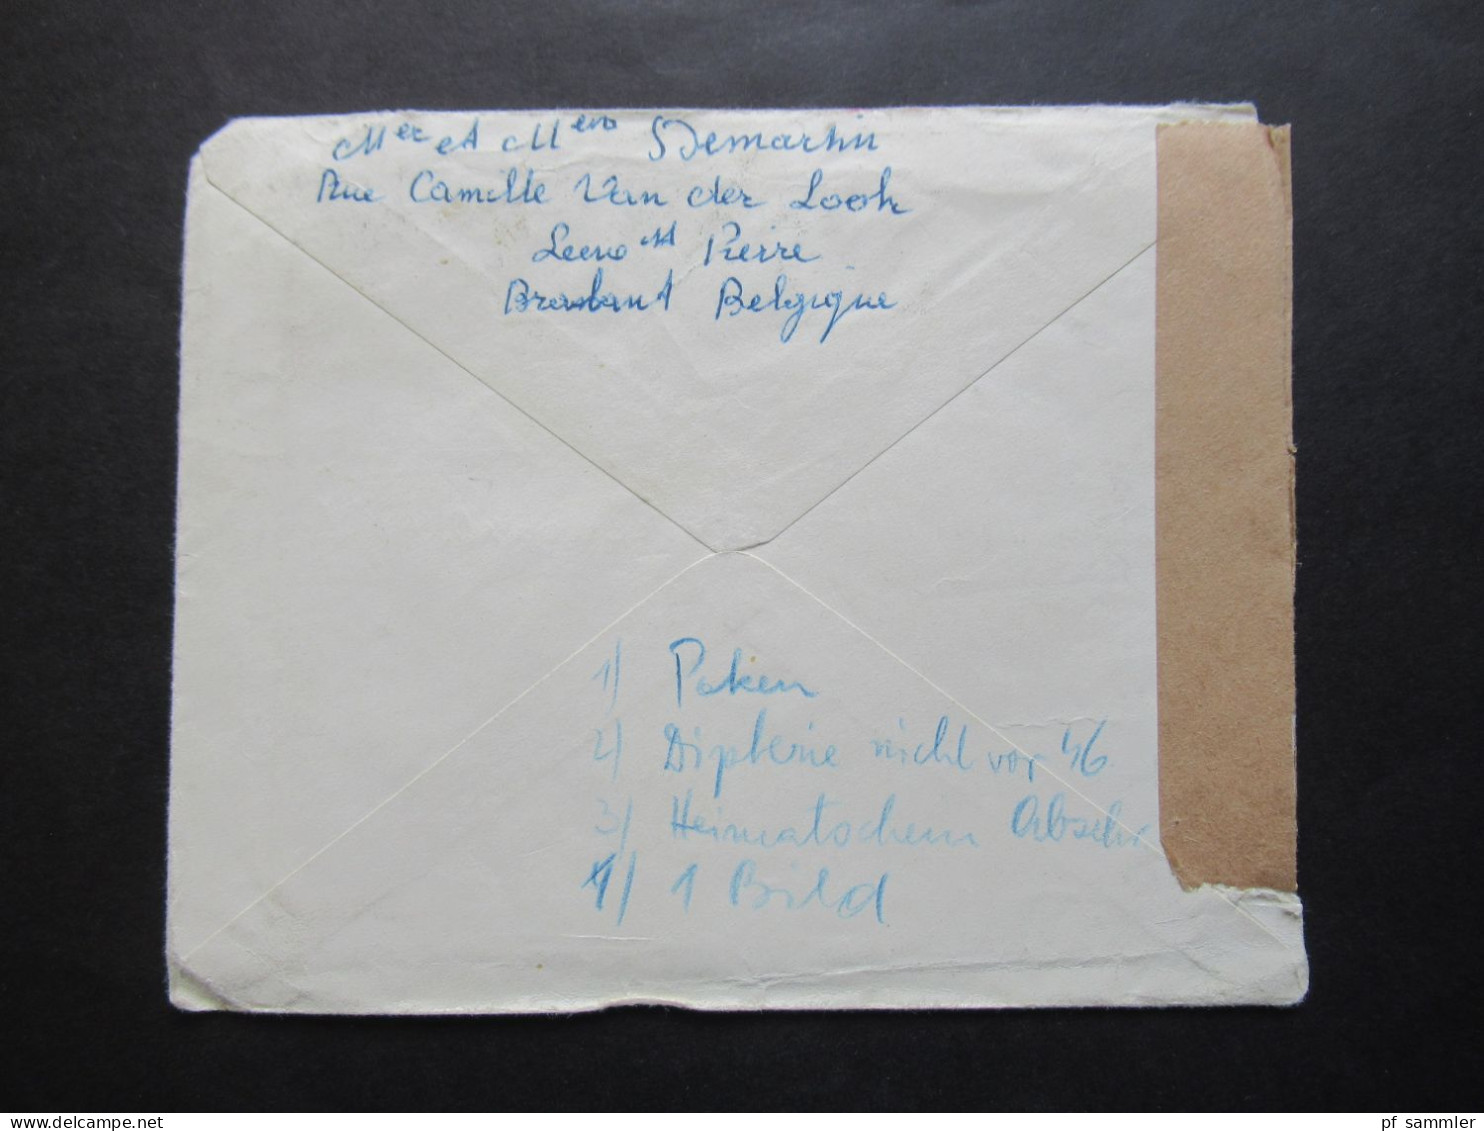 Mer et Men Demartin
Rue Camille Van der Look
Leeuw St Pierre
Brabant Belgique
1) Poken
2) Dipterie nicht vor 46
3) Heimatschein Abschr
4) 1 Bild
pf sammler